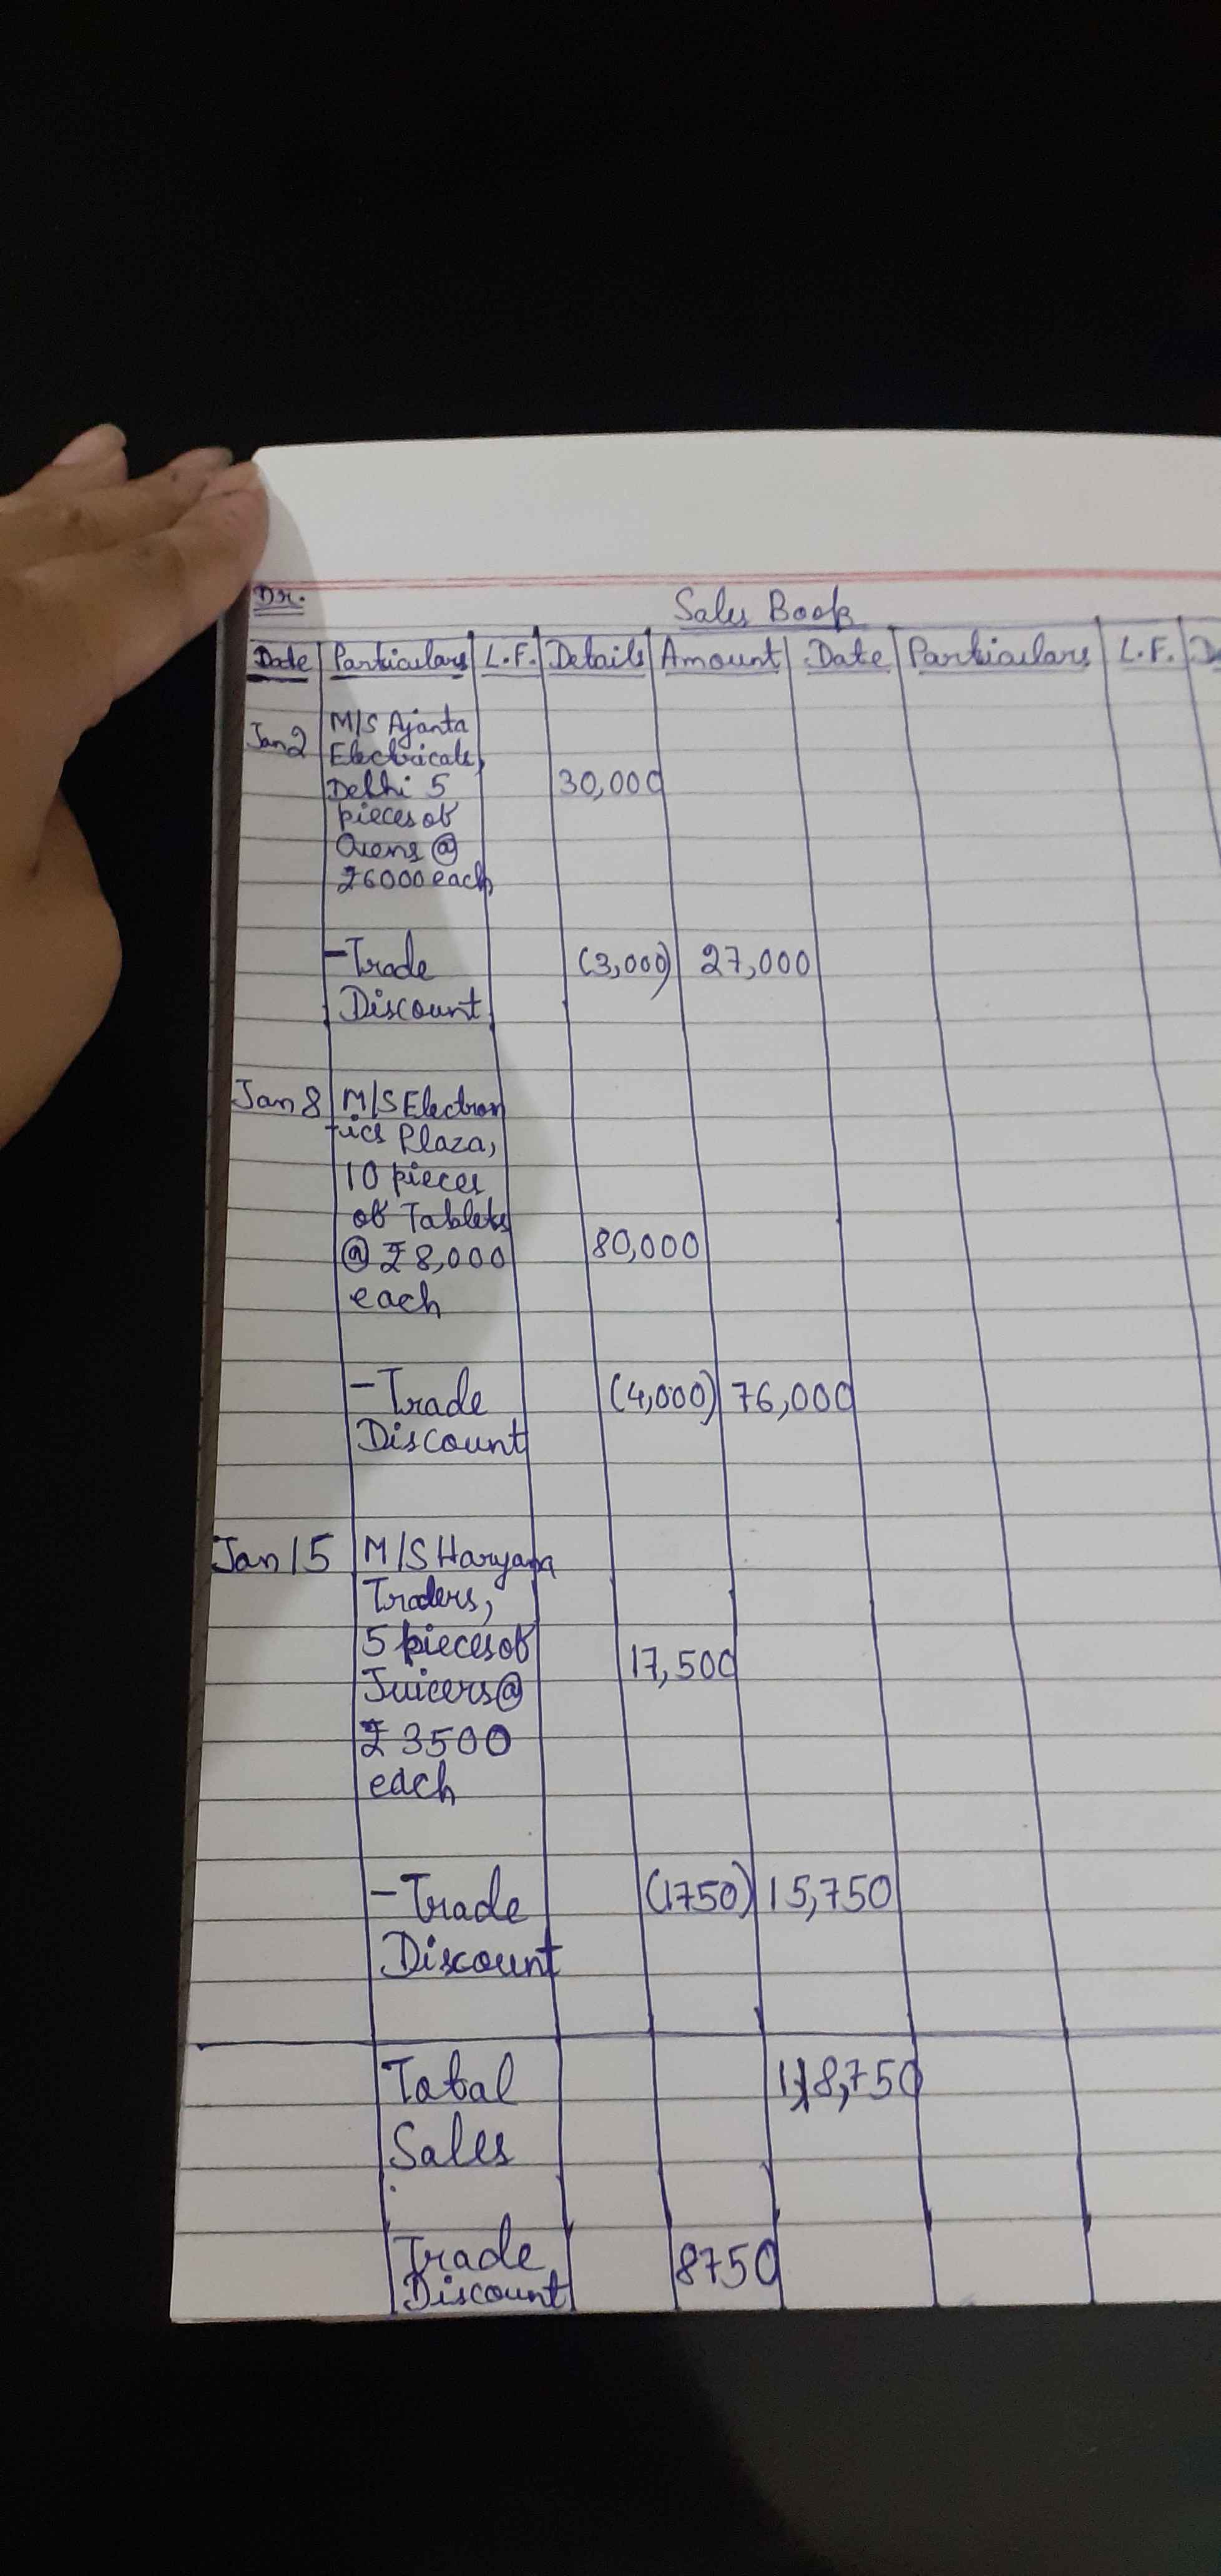 Dr.
Sales Book
Date Particulars L.F. Details Amount Date Particulars L.F.
Jan 2 M/S Ajanta
Electricals,
Delhi 5 30,000
pieces of
Ovens @
₹6000 each
- Trade (3,000) 27,000
Discount
Jan 8 M/S Electron
ics Plaza,
10 pieces
of Tablets
@ ₹8,000 80,000
each
- Trade (4,000) 76,000
Discount
Jan 15 M/S Haryana
Traders,
5 pieces of 17,500
Juicers @
₹3500
each
- Trade (1750) 15,750
Discount
Total 118,750
Sales
Trade 8750
Discount